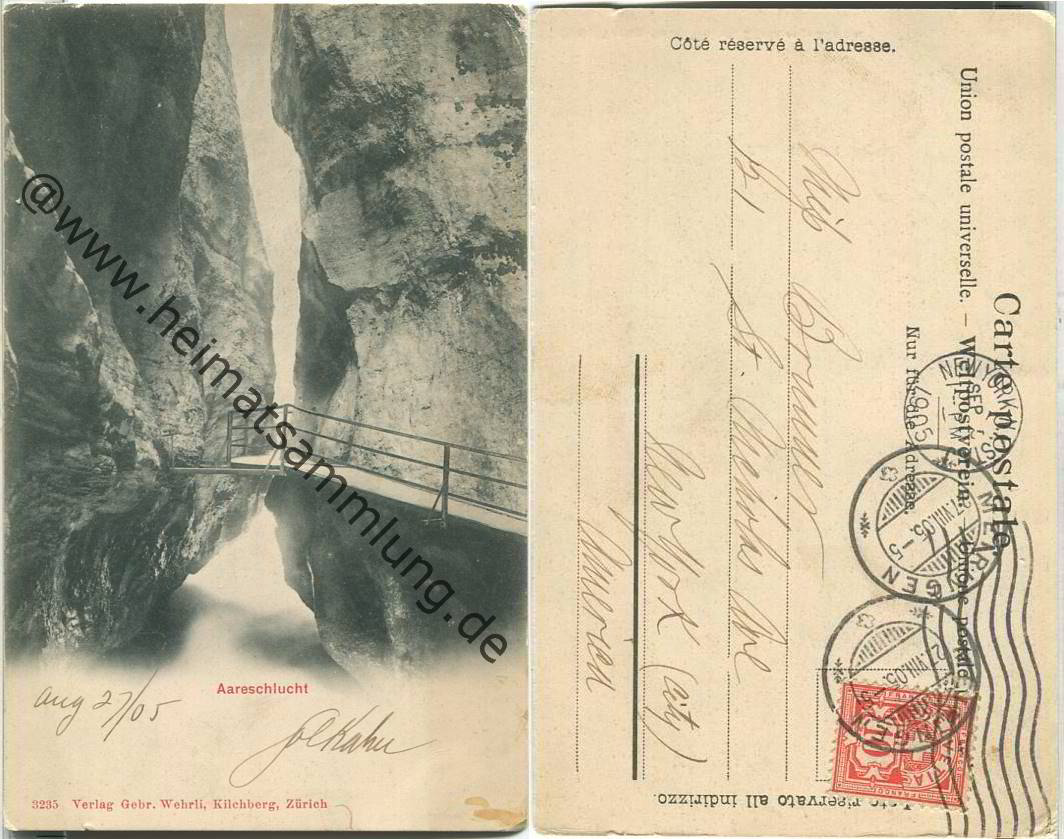 @www.heimatsammlung.de
Aareschlucht
Aug 27/05
Sol Kahn
3235 Verlag Gebr. Wehrli, Kilchberg, Zürich
Côté réservé à l'adresse.
Carte postale
Union postale universelle. – Weltpostverein. – Unione postale
Nur für die Adresse.
NEW YORK, N.Y.
SEP
PM
1905
MEIRINGEN
27.VIII.05.–5
VIII.05.
FRANCO
Miss Brunner
St. Nicholas Ave
New York (City)
America
Lato riservato all indirizzo.